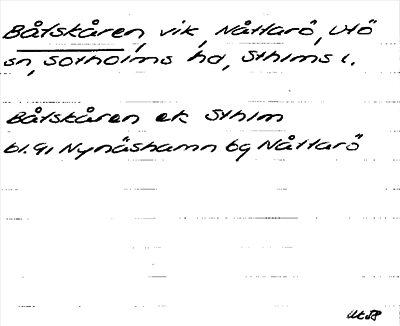 Båtskåren, vik, Nåttarö, Utö
sn, Sotholms hd, Sthlms l.
Båtskåren ek Sthlm
bl.91 Nynäshamn bg Nåttarö